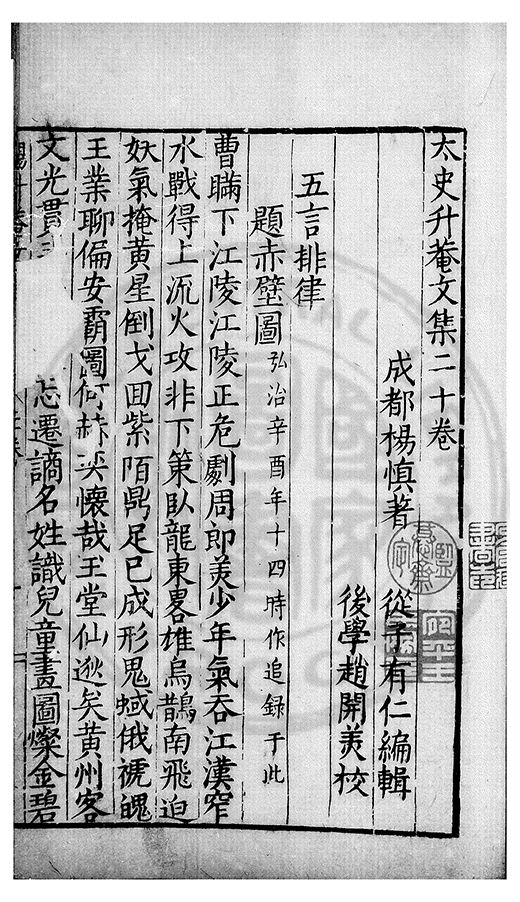 太史升菴文集二十卷
成都楊慎著
從子有仁編輯
後學趙開美校
五言排律
題赤壁圖 弘治辛酉年十四時作追錄于此
曹瞞下江陵江陵正危劇周郎美少年氣吞江漢窄
水戰得上流火攻非下策臥龍東畧雄烏鵲南飛迫
妖氣掩黃星倒戈囬紫陌鼎足已成形鬼蜮俄褫魄
王業聊偏安霸圖何赫奕懷哉玉堂仙逖矣黃州客
文光貫 忘遷謫名姓識兒童畫圖燦金碧